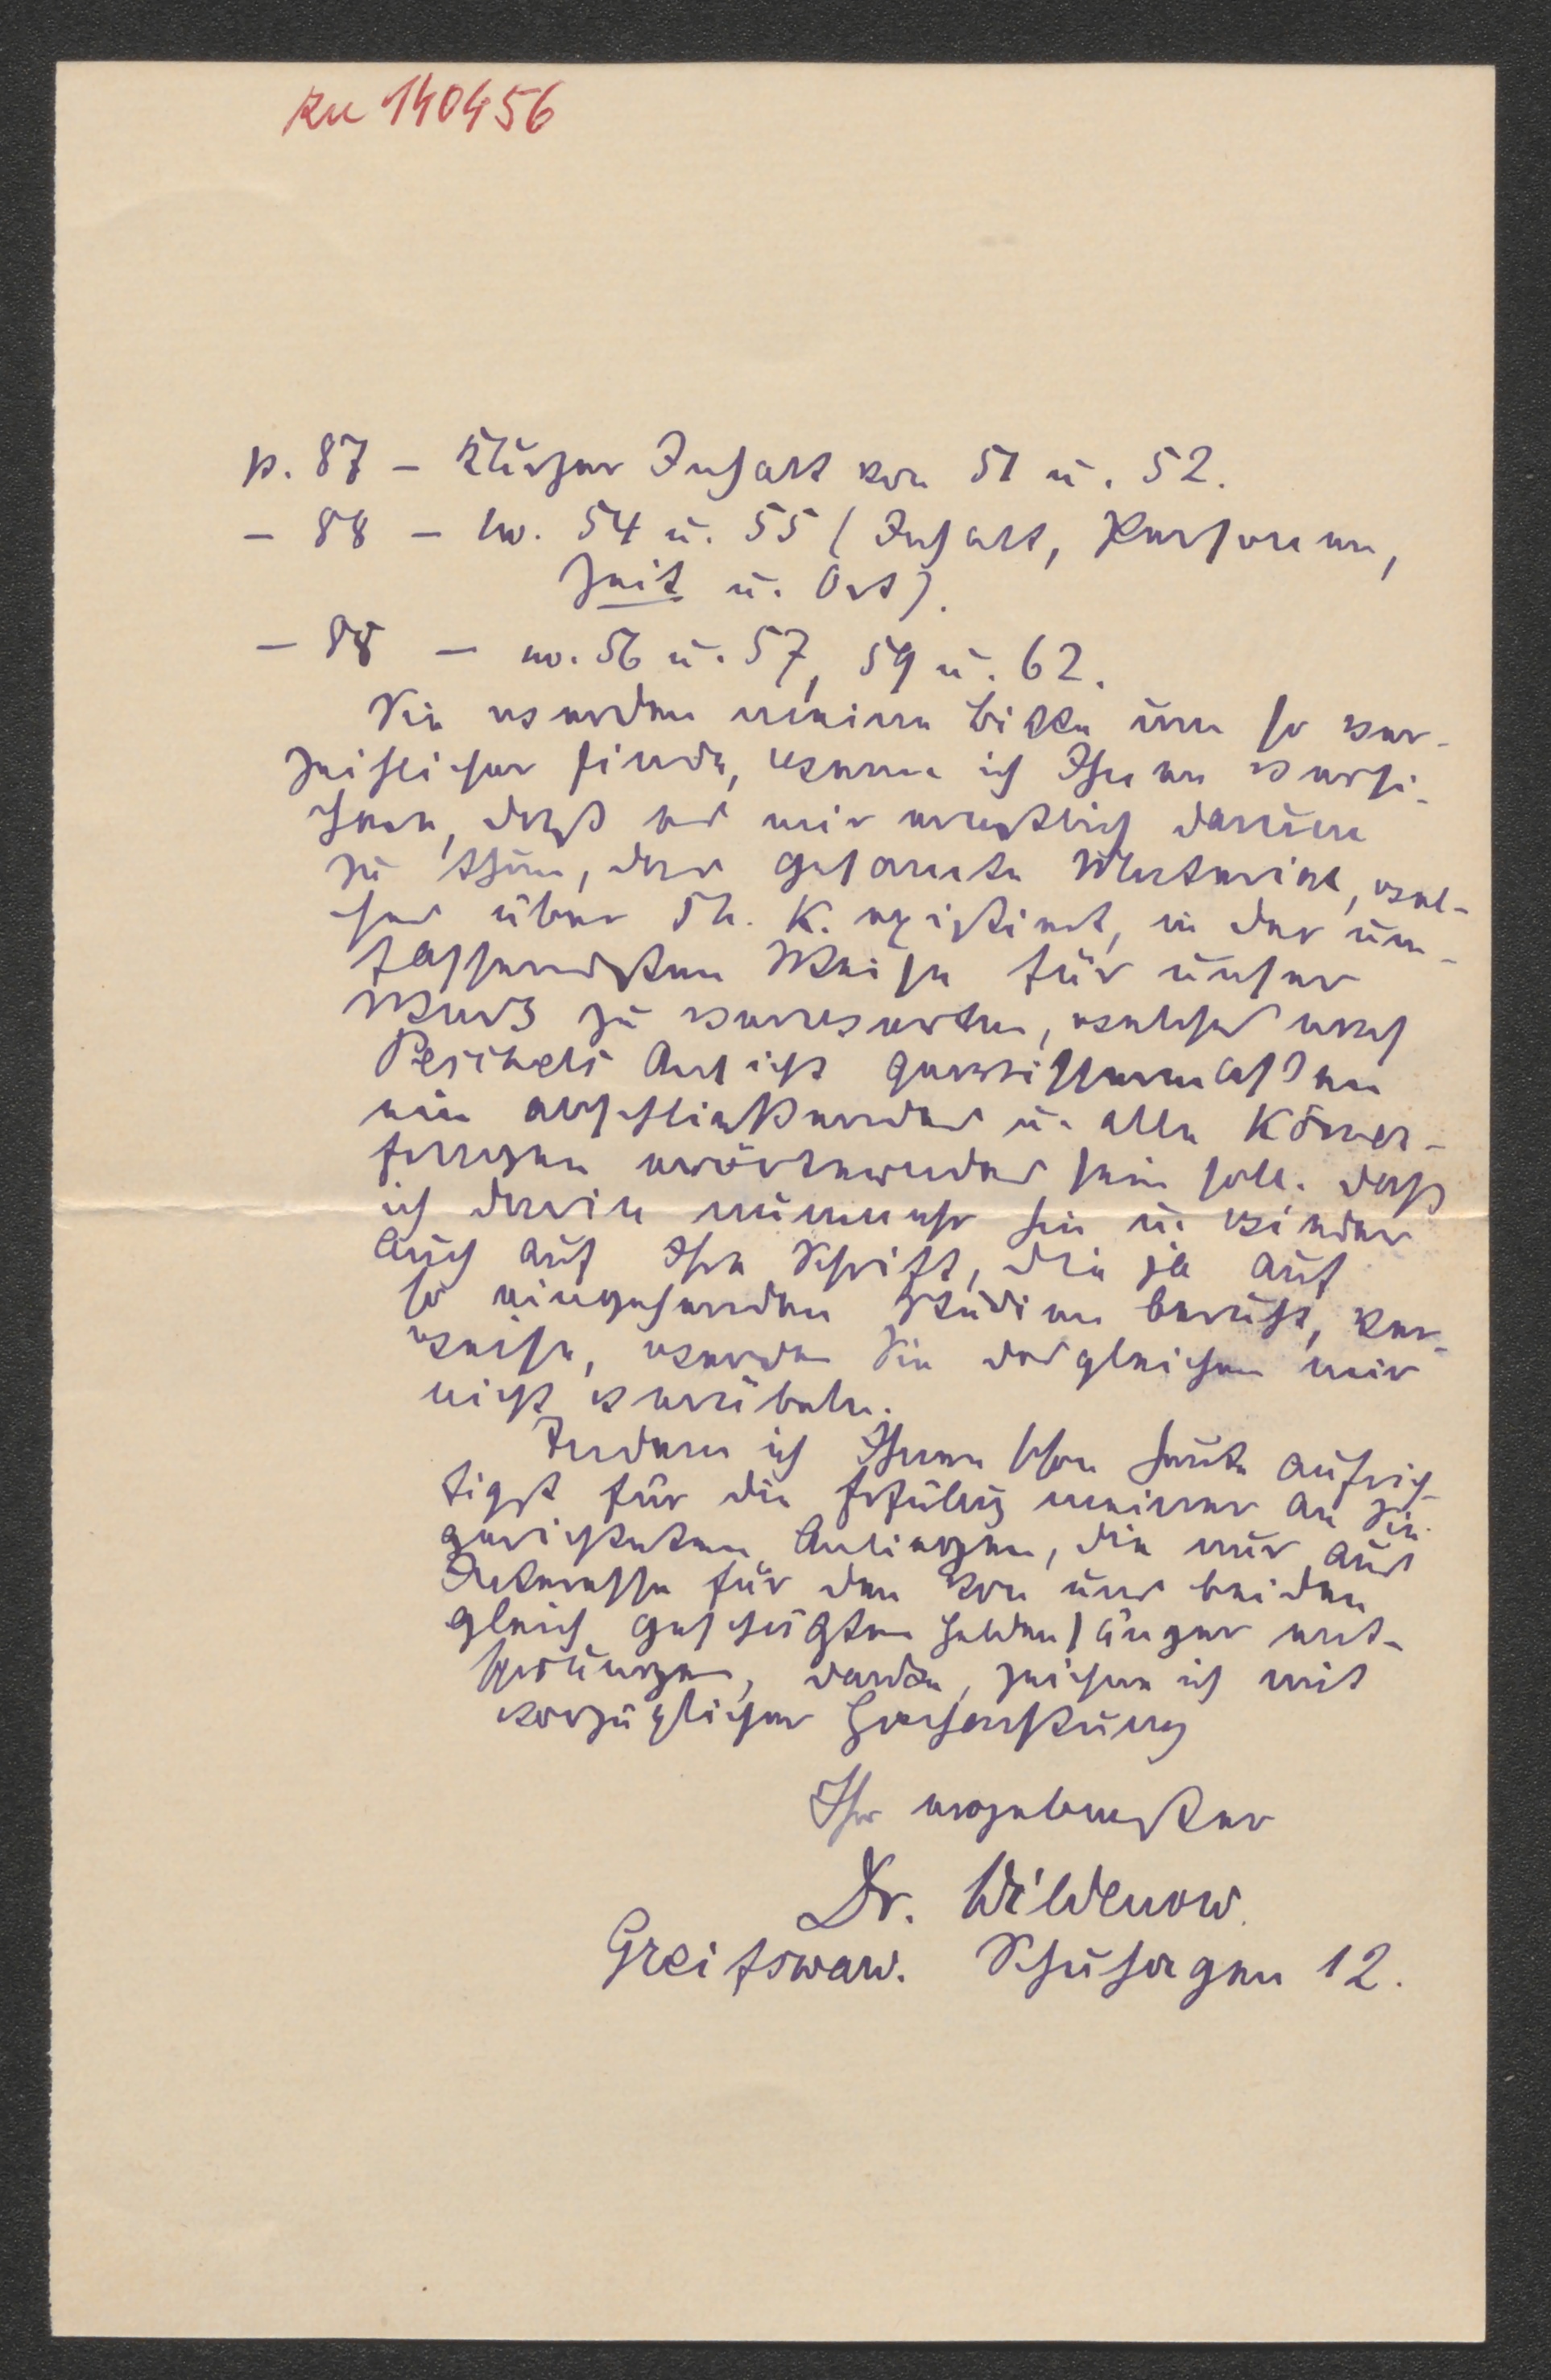 zu 140456
p. 87 – Kurzer Inhalt von 51 u. 52.
– 88 – no. 54 u. 55 (Inhalt, Personen,
Zeit u. Ort).
– 88 – no. 56 u. 57, 59 u. 62.
Sie werden meine Bitte um so ver-
zeihlicher finde, wenn ich Ihnen versi-
chere, daß es mir ernstlich darum
zu thun, das gesamte Material, wel-
ches über Th. K. existiert, in der um-
fassendsten Weise für unser
Werk zu verwerten, welches nach
Peschels Ansicht gewissermaßen
ein abschließendes u. alle Körner-
fragen erörterndes sein soll. Daß
ich darin nunmehr hin u. wieder
auch auf Ihre Schrift, die ja auf
so eingehenden Studien beruht, ver-
weise, werden Sie desgleichen mir
nicht verübeln.
Indem ich Ihnen schon heute aufrich-
tigst für die Erfüllung meiner an Sie
gerichteten Anliegen, die nur aus
Interesse für den von uns beiden
gleich geschätzten Heldensänger ent-
sprungen, danke, zeichne ich mit
vorzüglicher Hochachtung
Ihr ergebenster
Dr. Wildenow.
Greifswald. Schuhagen 12.